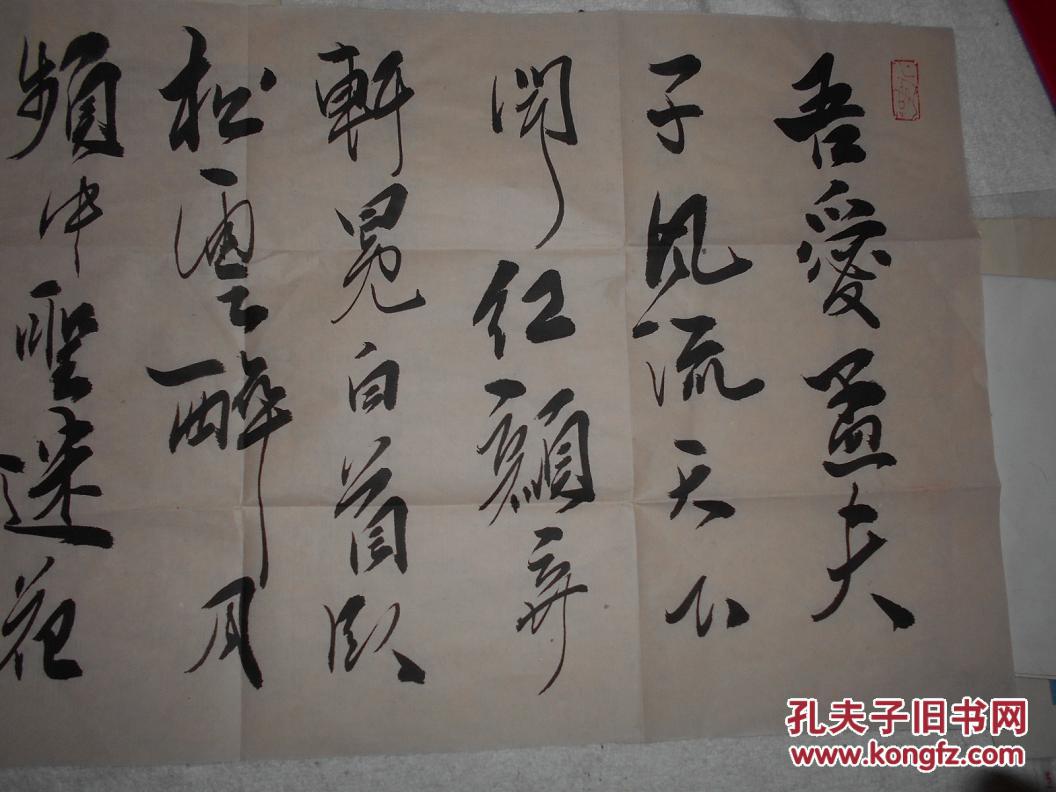 吾愛孟夫
子風流天下
聞紅顏棄
軒冕白首臥
松雲醉月
頻中聖迷花
孔夫子旧书网
www.kongfz.com